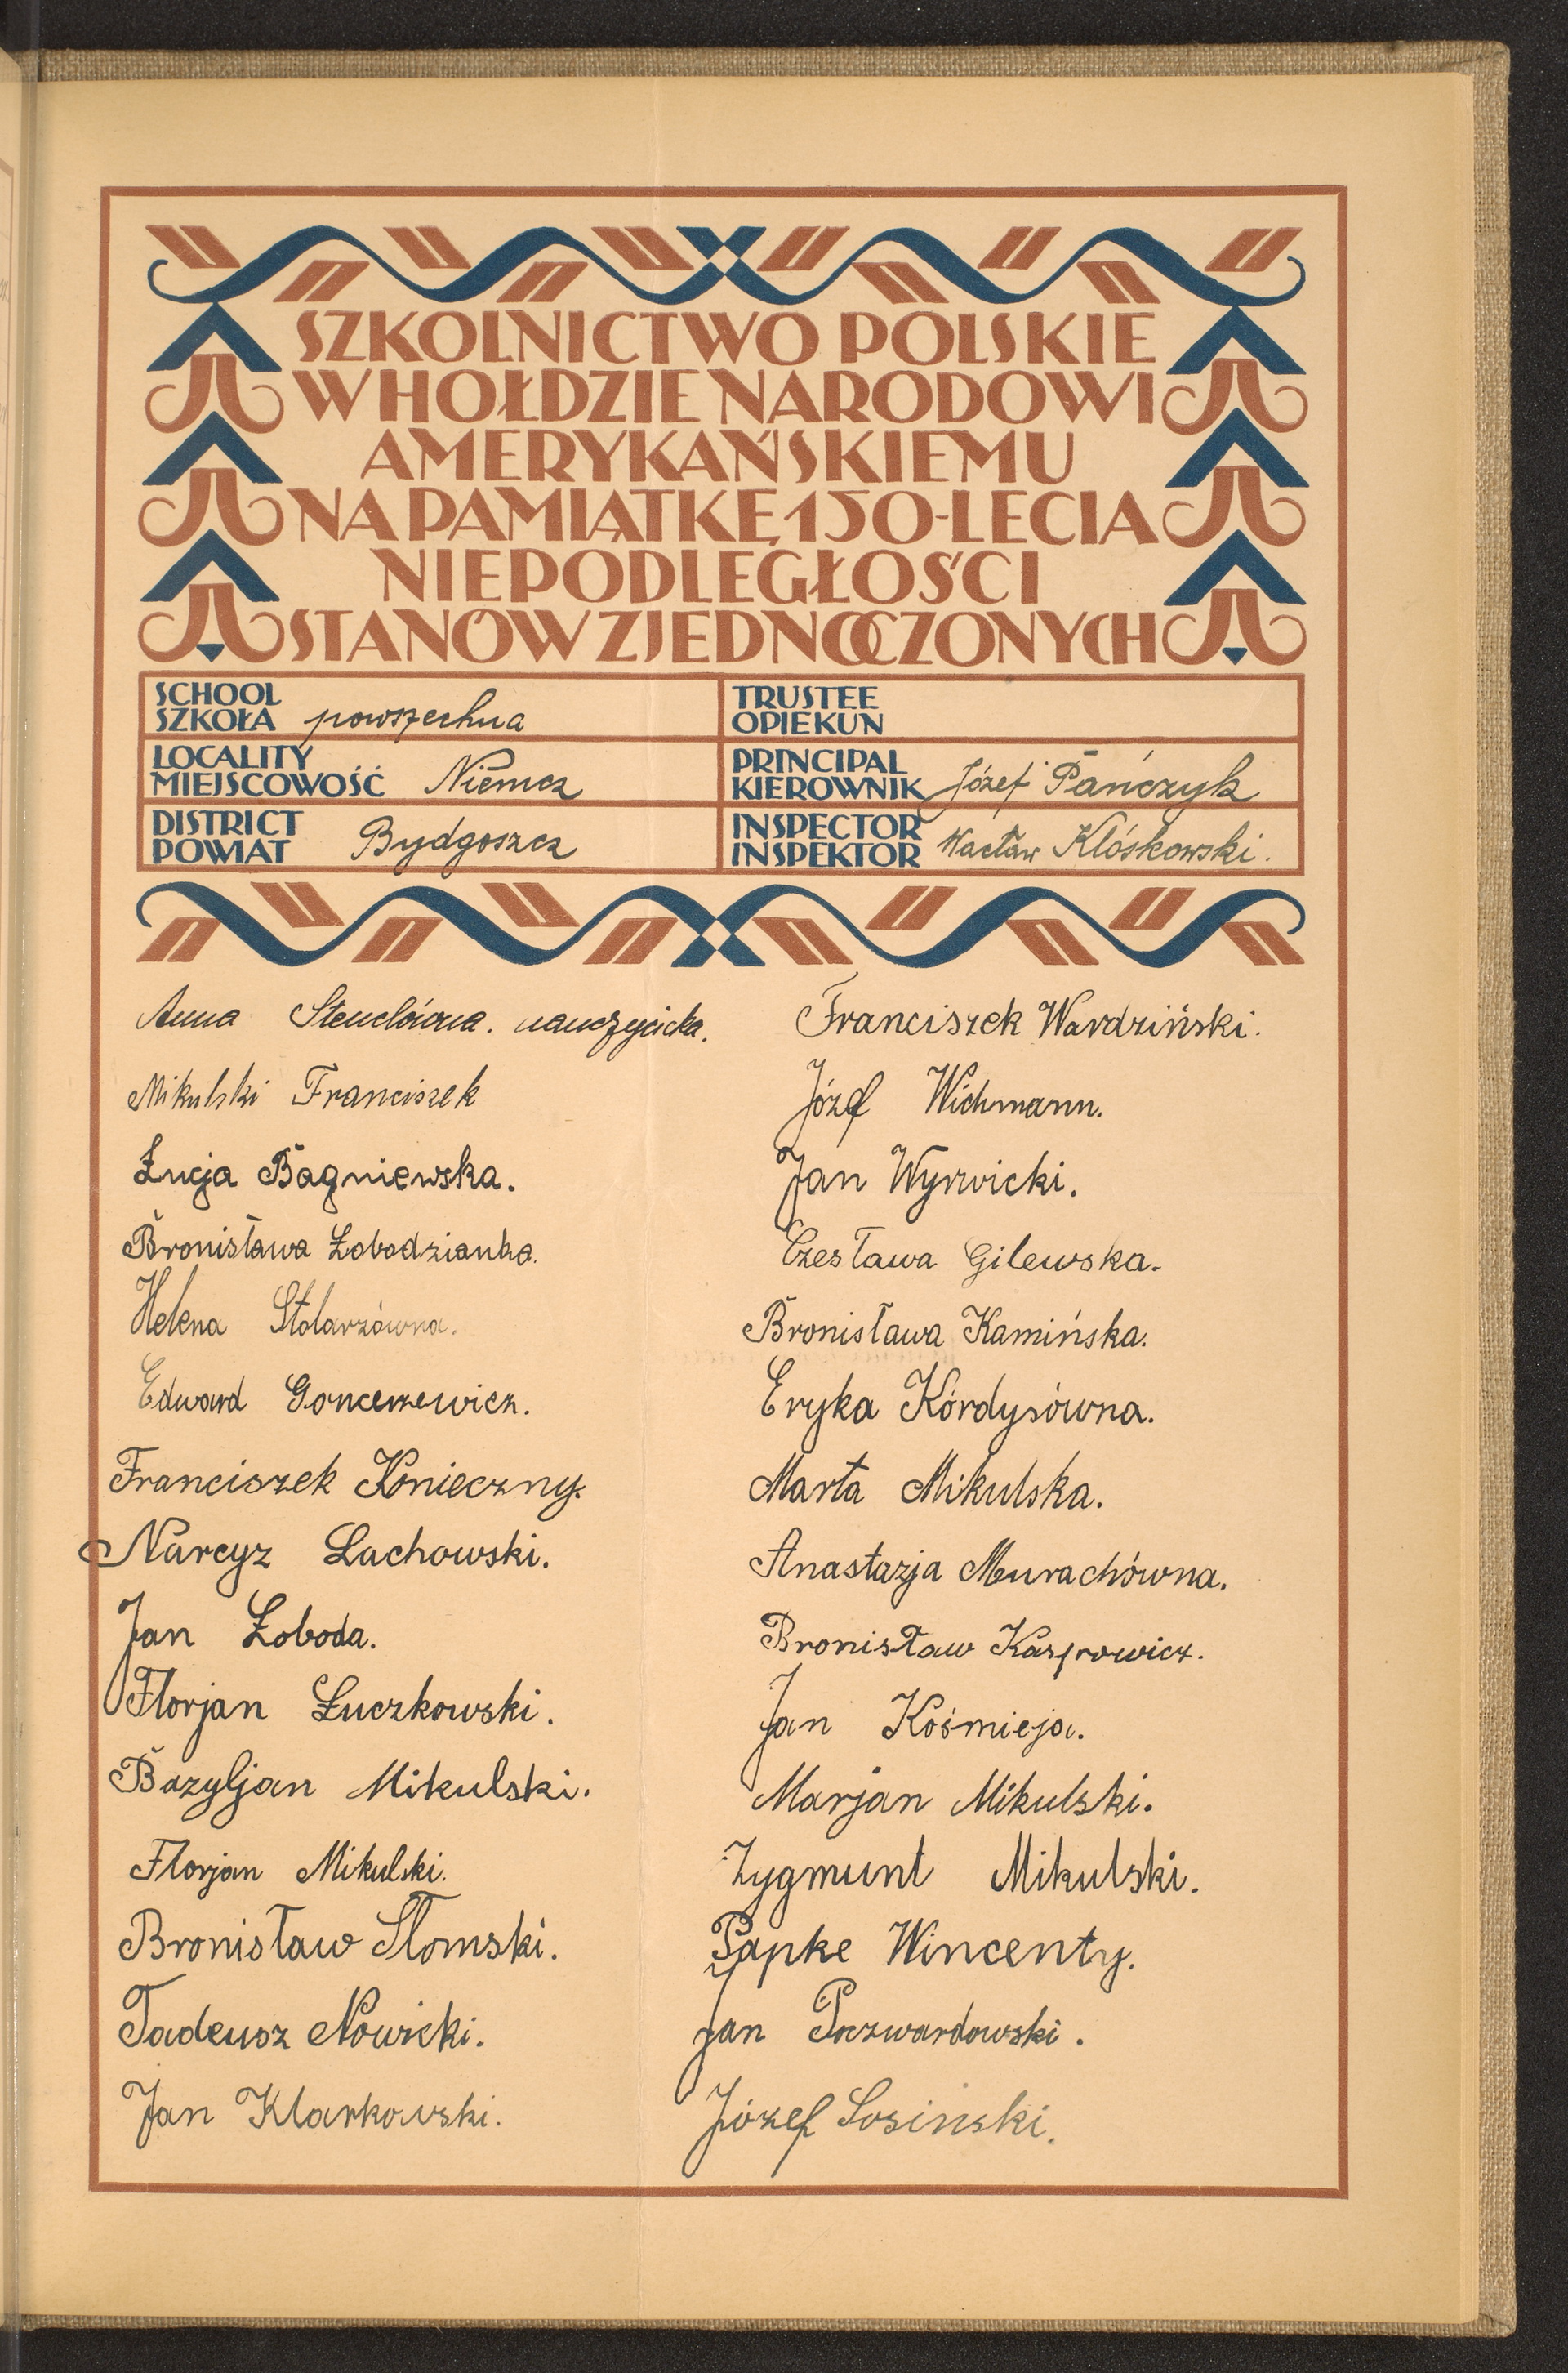 SZKOLNICTWO POLSKIE
W HOŁDZIE NARODOWI
AMERYKAŃSKIEMU
NA PAMIĄTKĘ 150-LECIA
NIEPODLEGŁOŚCI
STANÓW ZJEDNOCZONYCH
SCHOOL
SZKOŁA powszechna
LOCALITY
MIEJSCOWOŚĆ Niemcz
DISTRICT
POWIAT Bydgoszcz
TRUSTEE
OPIEKUN
PRINCIPAL
KIEROWNIK Józef Pańczyk
INSPECTOR
INSPEKTOR Wacław Klóskowski.
Anna Stenclówna. nauczycielka.
Mikulski Franciszek
Łucja Bagniewska.
Bronisława Łobodzianka.
Helena Stolarzówna.
Edward Goncerzewicz.
Franciszek Konieczny.
Narcyz Lachowski.
Jan Łoboda.
Florjan Łuczkowski.
Bazyljan Mikulski.
Florjan Mikulski.
Bronisław Słomski.
Tadeusz Nowicki.
Jan Klarkowski.
Franciszek Wardziński.
Józef Wichmann.
Jan Wyrwicki.
Czesława Gilewska.
Bronisława Kamińska.
Eryka Kórdysówna.
Marta Mikulska.
Anastazja Murachówna.
Bronisław Kasprowicz.
Jan Kośmieja.
Marjan Mikulski.
Zygmunt Mikulski.
Papke Wincenty.
Jan Poczwardowski.
Józef Sosinski.